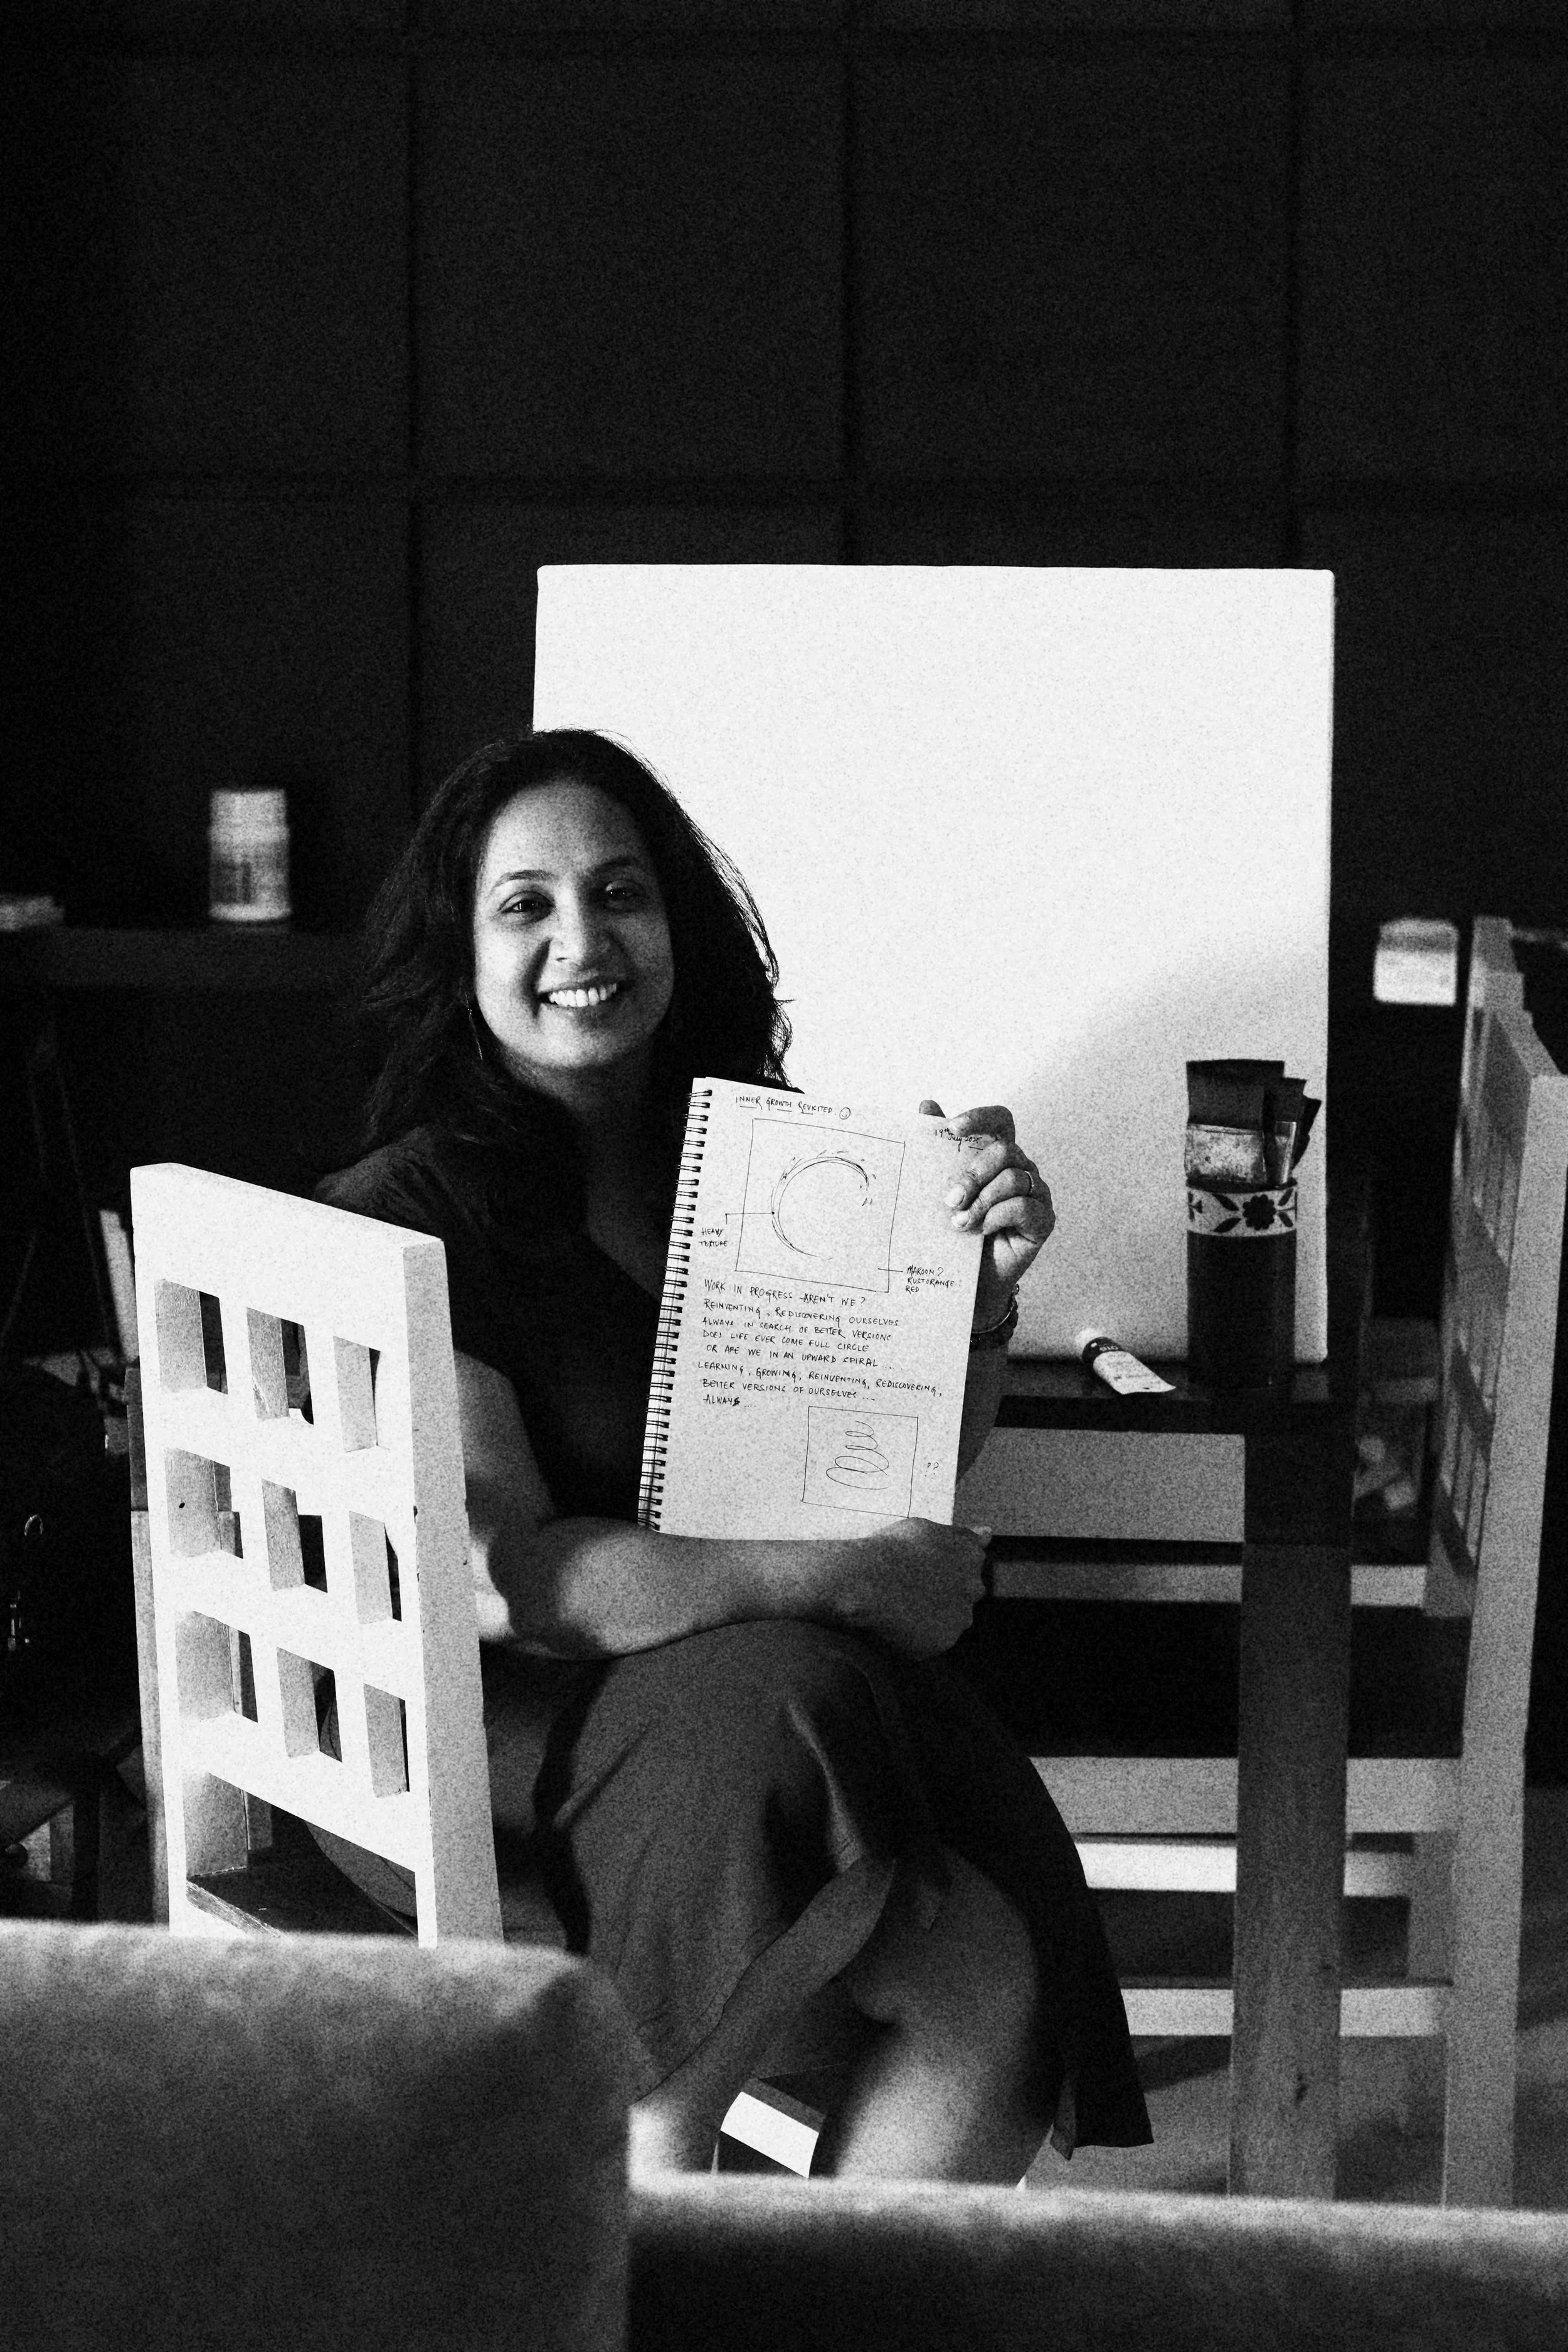 INNER GROWTH REVISITED
19th July 2025
HEAVY
TEXTURE
MAROON?
RUSTORANGE?
RED
WORK IN PROGRESS AREN'T WE?
REINVENTING, REDISCOVERING OURSELVES
ALWAYS IN SEARCH OF BETTER VERSIONS
DOES LIFE EVER COME FULL CIRCLE
OR ARE WE IN AN UPWARD SPIRAL ...
LEARNING, GROWING, REINVENTING, REDISCOVERING,
BETTER VERSIONS OF OURSELVES ...
ALWAYS
??